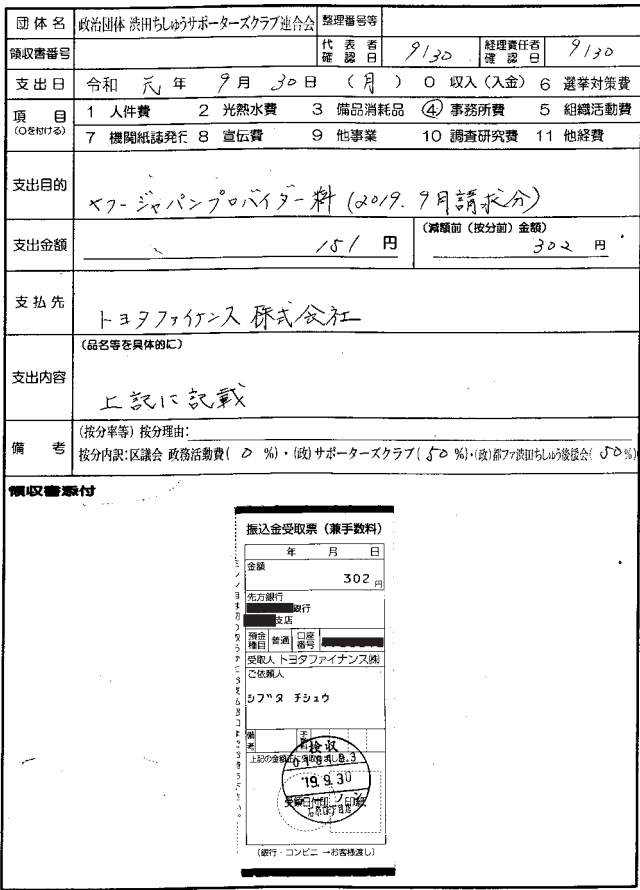 団体名 政治団体 渋田ちしゅうサポーターズクラブ連合会 整理番号等
領収書番号 代表者確認日 9/30 経理責任者確認日 9/30
支出日 令和 元 年 9 月 30 日 (月) 0 収入(入金) 6 選挙対策費
項目 (○を付ける) 1 人件費 2 光熱水費 3 備品消耗品 ④ 事務所費 5 組織活動費
7 機関紙誌発行 8 宣伝費 9 他事業 10 調査研究費 11 他経費
支出目的 ヤフージャパンプロバイダー料 (2019.9月請求分)
支出金額 151 円 (減額前(按分前)金額) 302 円
支払先 トヨタファイナンス株式会社
支出内容 (品名等を具体的に)
上記に記載
備考 (按分率等) 按分理由:
按分内訳:区議会 政務活動費( 0 %)・(政)サポーターズクラブ( 50 %)・(政)都ファ渋田ちしゅう後援会( 50 %)
領収書添付
振込金受取票(兼手数料)
年 月 日
金額
302 円
先方銀行
銀行
支店
預金種目 普通 口座番号
受取人 トヨタファイナンス㈱
ご依頼人
シブタ チシュウ
備考
上記の金額正に受取りました
検収
'19.9.30
(銀行・コンビニ→お客様渡し)